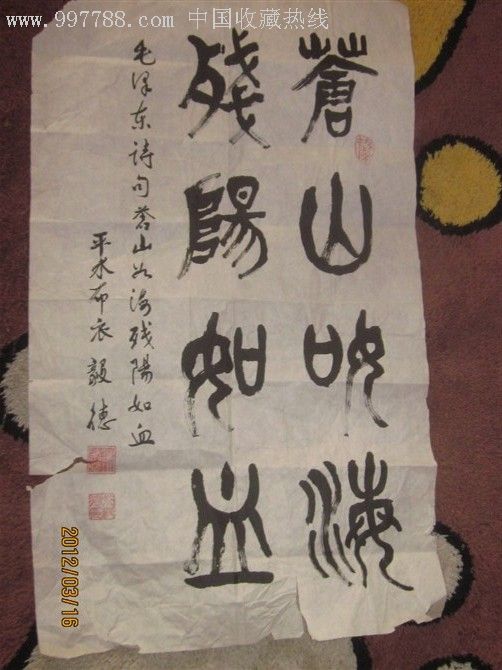 www.997788.com 中国收藏热线
蒼山如海
殘陽如血
毛泽东詩句蒼山如海残陽如血
平水布衣 毅德
2012/03/16